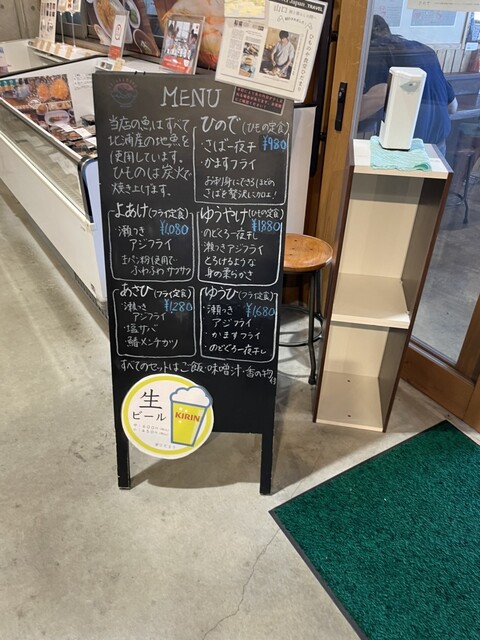 MENU
当店の魚はすべて
北浦産の地魚を
使用しています。
ひものは炭火で
焼き上げします。
ひので(ひもの定食)
¥980
・さば一夜干
・かますフライ
お刺身にできるほどの
さばを贅沢にカロ!
よあけ(フライ定食)
¥1,080
・瀬つき
アジフライ
生パン粉使用で
ふわふわ サクサク
ゆうやけ(ひもの定食)
¥1880
・のどぐろ一夜干し
瀬つきアジフライ
とろけるような
身の柔らかさ
あさひ(フライ定食)
¥1,280
・瀬つき
アジフライ
・塩サバ
・鯖メンチカツ
ゆうひ(フライ定食)
¥1,680
・瀬つき
アジフライ
・かますフライ
・のどぐろ一夜干し
すべてのセットはご飯・味噌汁・香の物付
生
ビール
KIRIN
Japan TRAVEL